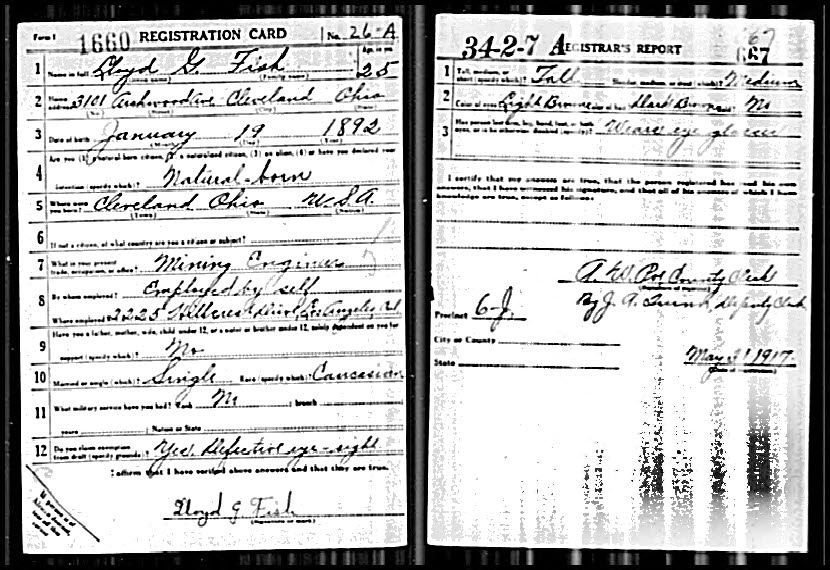 Form 1 1660 REGISTRATION CARD No. 26-A
1 Name in full Lloyd G. Fish Age, in yrs. 25
(Family name)
2 Home address 3101 Archwood Ave Cleveland Ohio
(No.) (City) (State)
3 Date of birth January 19 1892
(Month) (Day) (Year)
Are you (1) a natural-born citizen, (2) a naturalized citizen, (3) an alien, (4) or have you declared your
4 intention (specify which)? Natural-born
5 Where were you born? Cleveland Ohio U.S.A.
(Town) (State) (Nation)
6 If not a citizen, of what country are you a citizen or subject?
7 What is your present trade, occupation, or office? Mining Engineer
8 By whom employed? Employed by self
Where employed? 2225 Hillcrest Drive, Los Angeles Cal
Have you a father, mother, wife, child under 12, or a sister or brother under 12, solely dependent on you for
9 support (specify which)? No
10 Married or single (which)? Single Race (specify which)? Caucasian
11 What military service have you had? Rank No ; branch
years ; Nation or State
12 Do you claim exemption from draft (specify grounds)? Yes, Defective eye-sight
I affirm that I have verified above answers and that they are true.
Lloyd G. Fish
(Signature or mark)
If person is of African descent,
34-2-7 A REGISTRAR'S REPORT 667
67
1 Tall, medium, or short (specify which)? Tall Slender, medium, or stout (which)? Medium
2 Color of eyes Light Brown Color of hair Dark Brown Bald? No
3 Has person lost arm, leg, hand, foot, or both eyes, or is he otherwise disabled (specify)? Wears eye glasses
I certify that my answers are true, that the person registered has read his own
answers, that I have witnessed his signature, and that all of his answers of which I have
knowledge are true, except as follows:
County Clerk
By J. A. Deputy Clerk
Precinct 6 J.
City or County
State May 31 1917